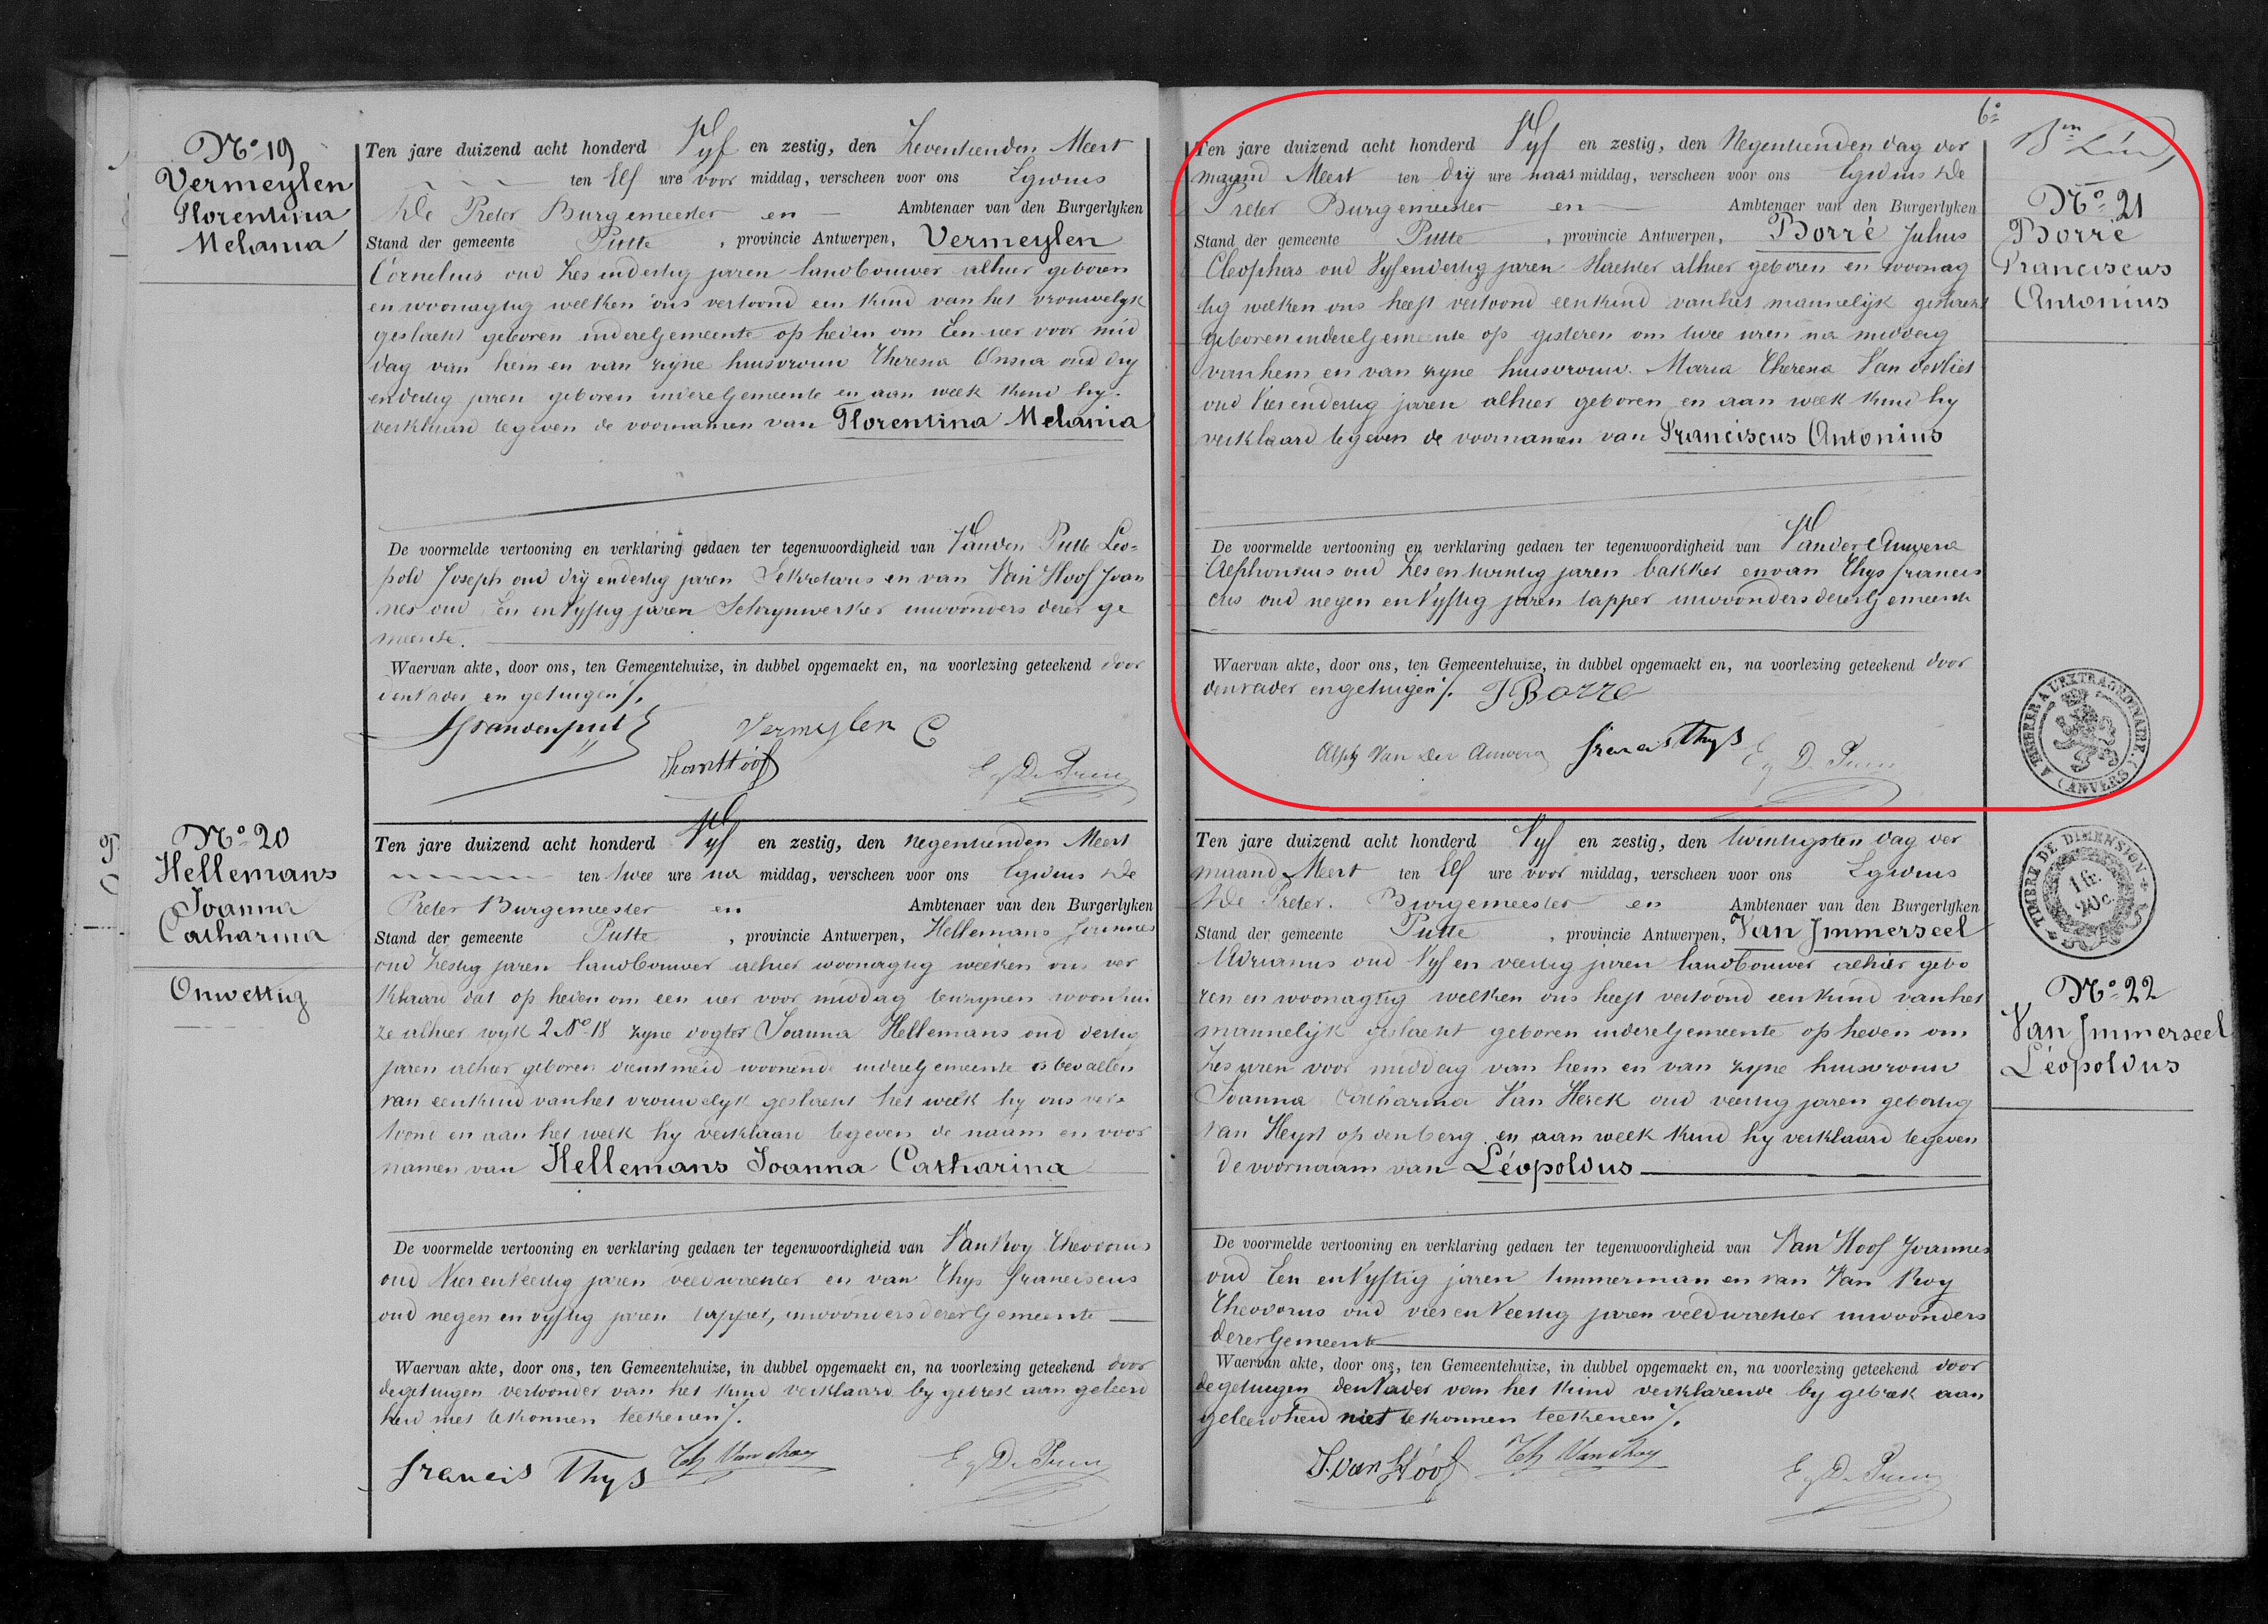 No 19
Vermeylen
Florentina
Melania
Ten jare duizend acht honderd Vyf en zestig, den Zeventienden Meert
ten Elf ure voor middag, verscheen voor ons Egidius
De Preter Burgemeester en Ambtenaer van den Burgerlyken
Stand der gemeente Putte, provincie Antwerpen, Vermeylen
Cornelius oud Zes endertig jaren landbouwer alhier geboren
en woonagtig welken ons vertoond een kind van het vrouwelyk
geslacht geboren indereGemeente op heden om Een uer voor mid
dag van hem en van zyne huisvrouw Theresia oud dry
endertig jaren geboren indereGemeente en aan welk kind hy
verklaard tegeven de voornamen van Florentina Melania
De voormelde vertooning en verklaring gedaen ter tegenwoordigheid van Vanden Putte Leo-
pold Joseph oud drÿ endertig jaren Sekretaris en van Van Hoof Joan
nes oud Een enVyftig jaren Schrynwerker inwoonders derer ge
meente.
Waervan akte, door ons, ten Gemeentehuize, in dubbel opgemaekt en, na voorlezing geteekend door
denVader en getuigen ./.
Vermeylen C
No 20
Hellemans
Joanna
Catharina
Onwettig
Ten jare duizend acht honderd Vyf en zestig, den Negentienden Meert
ten twee ure na middag, verscheen voor ons Egidius De
Preter Burgemeester en Ambtenaer van den Burgerlyken
Stand der gemeente Putte, provincie Antwerpen, Hellemans Joannes
oud Zestig jaren landbouwer alhier woonagtig welken ons ver
klaard dat op heden om een uer voor middag tenzynen woonhui
ze alhier wyk 2 No 18 zyne dogter Joanna Hellemans oud dertig
jaren alhier geboren dienstmeid woonende indereGemeente is bevallen
van eenkind vanhet vrouwelyk geslacht het welk hy ons ver-
toond en aan het welk hy verklaard tegeven de naam en voor
namen van Hellemans Joanna Catharina
De voormelde vertooning en verklaring gedaen ter tegenwoordigheid van VanRoy Theodorus
oud Vier enVeertig jaren veldwachter en van Thys Franciscus
oud negen en vyftig jaren tapper, inwoonders dererGemeente
Waervan akte, door ons, ten Gemeentehuize, in dubbel opgemaekt en, na voorlezing geteekend door
degetuigen vertoonder van het kind verklaard by gebrek aan geleerd
heid niet tekonnen teekenen ./.
Francis Thys
6e
No 21
Borré
Franciscus
Antonius
Ten jare duizend acht honderd Vyf en zestig, den Negentienden dag der
maand Meert ten drÿ ure naar middag, verscheen voor ons Egidius De
Preter Burgemeester en Ambtenaer van den Burgerlyken
Stand der gemeente Putte, provincie Antwerpen, Borré Julius
Cleophas oud Vyfendertig jaren alhier geboren en woonag
tig welken ons heeft vertoond eenkind vanhet mannelijk geslacht
geboren indereGemeente op gisteren om twee uren na middag
vanhem en van zyne huisvrouw Maria Theresia Van der Vliet
oud Vierendertig jaren alhier geboren en aan welk kind hy
verklaard tegeven de voornamen van Franciscus Antonius
De voormelde vertooning en verklaring gedaen ter tegenwoordigheid van Van der Auwera
Alphonsius oud Zes en twintig jaren bakker envan Thys Francis
cus oud negen enVyftig jaren tapper inwoonders dererGemeente
Waervan akte, door ons, ten Gemeentehuize, in dubbel opgemaekt en, na voorlezing geteekend door
denvader engetuigen ./. J Borré
Alph Van Der Auwera Francis Thys
TIMBRER A L'EXTRAORDINAIRE. (ANVERS)
TIMBRE DE DIMENSION
1 fr.
20 c.
No 22
Van Jmmerseel
Léopoldus
Ten jare duizend acht honderd Vyf en zestig, den twintigsten dag der
maand Meert ten Elf ure voor middag, verscheen voor ons Egidius
De Preter. Burgemeester en Ambtenaer van den Burgerlyken
Stand der gemeente Putte, provincie Antwerpen, Van Jmmerseel
Adrianus oud Vyf en veertig jaren landbouwer alhier gebo
ren en woonagtig welken ons heeft vertoond eenkind vanhet
mannelijk geslacht geboren indereGemeente op heden om
Zes uren voor middag van hem en van zyne huisvrouw
Joanna Catharina Van Herck oud veertig jaren geboortig
van Heyst op denberg en aan welk kind hy verklaard tegeven
devoornaam van Léopoldus
De voormelde vertooning en verklaring gedaen ter tegenwoordigheid van Van Hoof Joannes
oud Een enVyftig jaren timmerman en van Van Roy
Theodorus oud vier enVeertig jaren veldwachter inwoonders
dererGemeente
Waervan akte, door ons, ten Gemeentehuize, in dubbel opgemaekt en, na voorlezing geteekend door
degetuigen denVader van het kind verklarende by gebrek aan
geleerdheid niet tekonnen teekenen ./.
J. Van Hoof